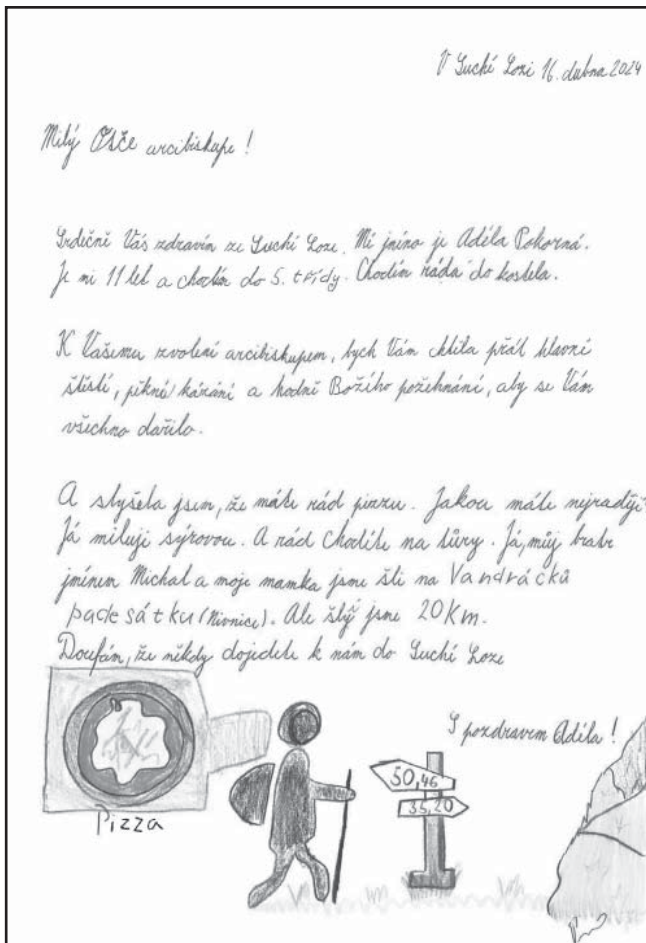 V Suché Lozi 16. dubna 2024
Milý Otče arcibiskupe!
Srdečně Vás zdravím ze Suché Loze. Mé jméno je Adéla Pokorná.
Je mi 11 let a chodím do 5. třídy. Chodím ráda do kostela.
K Vašemu zvolení arcibiskupem, bych Vám chtěla přát hlavně
štěstí, pěkné kázání a hodně Božího požehnání, aby se Vám
všechno dařilo.
A slyšela jsem, že máte rád pizzu. Jakou máte nejraději?
Já miluji sýrovou. A rád chodíte na túry. Já, můj bratr
jménem Michal a moje mamka jsme šli na Vandráckú
padesátku (Nivnice). Ale šly jsme 20 Km.
Doufám, že někdy dojedete k nám do Suché Loze
S pozdravem Adéla!
50,46
35,20
Pizza